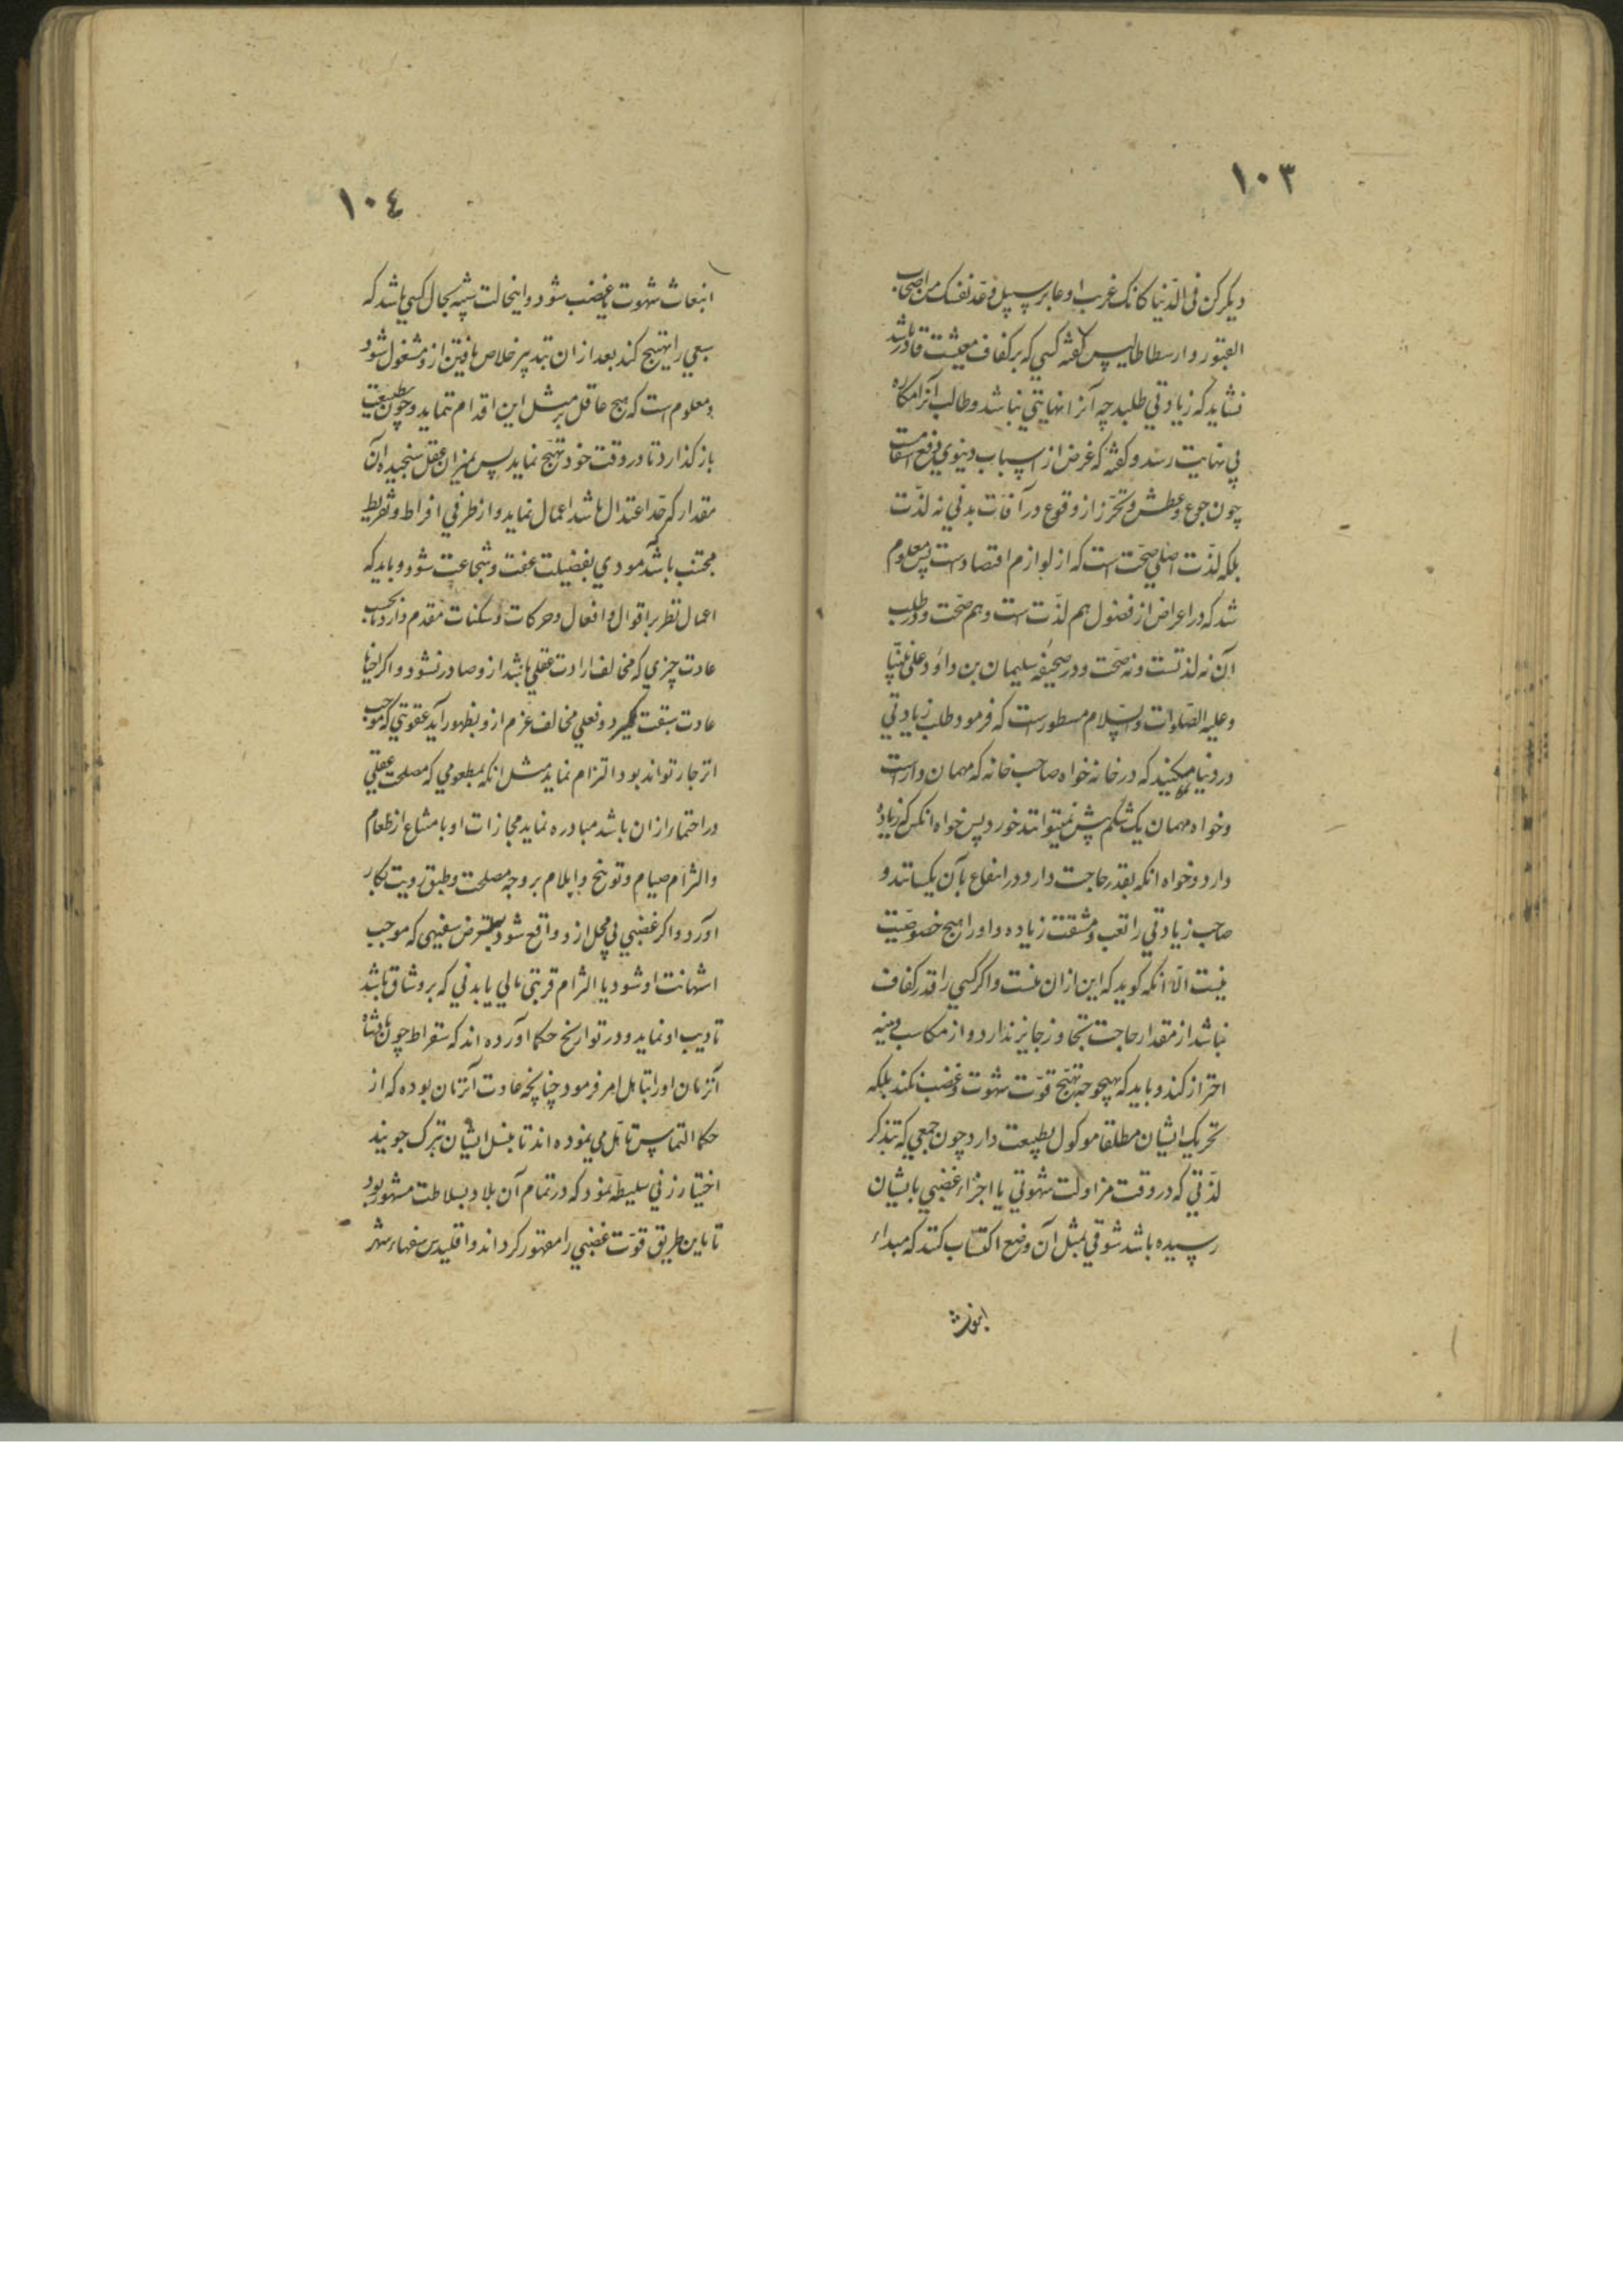 ١٠٣
دیکر کن فی الدّنیا کانک غریب او عابر سبیل وعد نفسک من اصحاب
القبور و ارسطاطالیس گفته کسی که بر کفاف معیشت قادر باشد
نشاید که زیادتی طلبد چه آنرا نهایتی نباشد و طالب آنرا مکاره
بی نهایت رسد و گفته که غرض از اسباب دنیوی دفع آفات است
چون جوع و عطش و تحرّز از وقوع در آفات بدنی نه لذّت
بلکه لذّت اصلی صحّت است که از لوازم اقتصاد است پس معلوم
شد که در اعراض از فضول هم لذّت است و هم صحّت و در طلب
آن نه لذتست و نه صحّت و در صحیفه سلیمان بن داود علی نبیّنا
و علیه الصّلوات والسّلام مسطور است که فرمود طلب زیادتی
در دنیا میکنید که در خانه خواه صاحب خانه که مهمان دار است
و خواه مهمان یک شکم بیش نمیتوانند خورد پس خواه انکس که زیاده
دارد و خواه انکه بقدر حاجت دارد در انتفاع بآن یکسانند و
صاحب زیادتی را تعب و مشقت زیاده و او را هیچ خصوصیّت
نیست الّا انکه کوید که این از ان منست و اکر کسی را قدر کفاف
نباشد از مقدار حاجت تجاوز جایز ندارد و از مکاسب دنیه
احتراز کند و باید که بهیچوجه تهیّج قوّت شهوت و غضب نکند بلکه
تحریک ایشان مطلقا موکول بطبیعت دارد چون جمعی که بتذکر
لذّتی که در وقت مزاولت شهوتی یا اجزاء غضبی بایشان
رسیده باشد شوقی بمثل آن وضع اکتساب کنند که مبداء
انبعاث
١٠٤
انبعاث شهوت یا غضب شود و اینحالت شبیه بحال کسی باشد که
سبعی را تهیّج کند بعد از ان بتدبیر خلاص یافتن ازو مشغول شود
و معلوم است که هیچ عاقل بر مثل این اقدام ننماید و چون بطبیعت
باز کذارد تا در وقت خود تهیّج نماید پس بمیزان عقل سنجیده آن
مقدار که حدّ اعتدال باشد اعمال نماید و از طرفی افراط و تفریط
مجتنب باشد مودی بفضیلت عفت و شجاعت شود و باید که
اعمال نظر بر اقوال و افعال و حرکات و سکنات مقدم دارد تا بحسب
عادت چیزی که مخالف ارادت عقلی باشد ازو صادر نشود و اکر احیانا
عادت سبقت کیرد و فعلی مخالف عزم ازو بظهور آید عقوبتی که موجب
انزجار تواند بود التزام نماید مثل انکه بمطعومی که مصلحت عقلی
در احتما از ان باشد مبادره نماید مجازات او بامتناع از طعام
و التزام صیام و توبیخ و ایلام بر وجه مصلحت و طبق رویت بکار
آورد و اکر غضبی بی محل ازو واقع شود بتعرض سفیهی که موجب
استهانت او شود یا التزام قربتی مالی یا بدنی که برو شاق باشد
تادیب او نماید و در تواریخ حکما آورده اند که سقراط چون پادشاه
آنزمان او را بتاهل امر فرمود چنانچه عادت آنزمان بوده که از
حکما التماس تاهّل می نموده اند تا بنسل ایشان تبرک جویند
اختیار زنی سلیطه نمود که در تمام آن بلاد بسلاطت مشهور بود
تا باین طریق قوّت غضبی را مقهور کرداند و اقلیدس سفهاء شهر